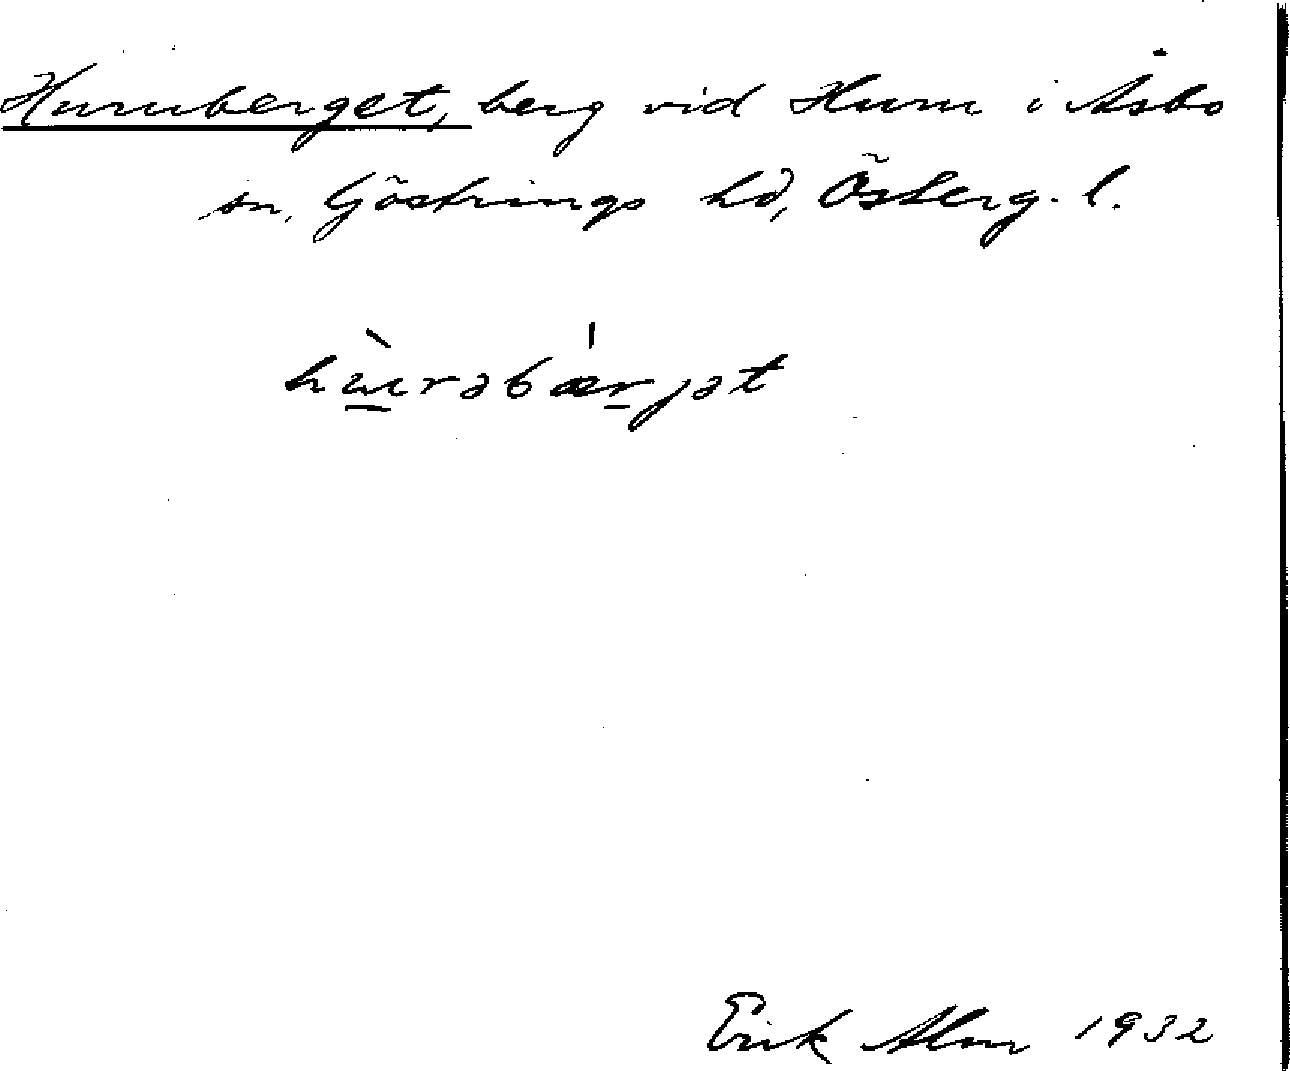 Huruberget, berg vid Huru i Åsbo
sn, Göstrings hd, Österg. l.
hùrəbærjət
Erik Alm 1932